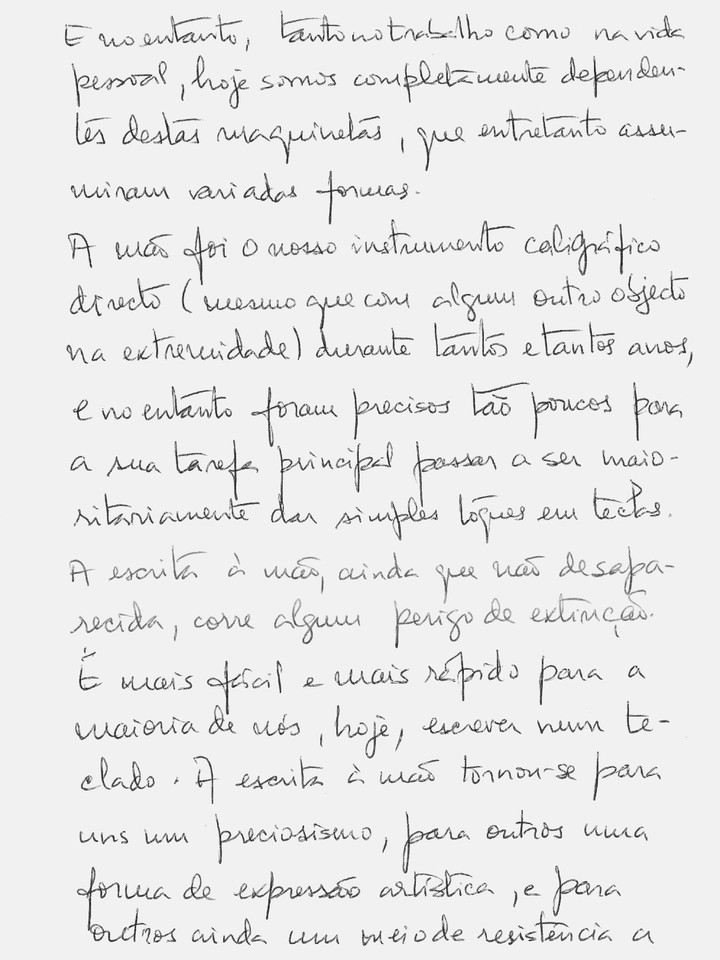 E no entanto, tanto no trabalho como na vida
pessoal, hoje somos completamente dependen-
tes destas maquinetas, que entretanto assu-
miram variadas formas.
A mão foi o nosso instrumento caligráfico
directo (mesmo que com algum outro objecto
na extremidade) durante tantos e tantos anos,
e no entanto foram precisos tão poucos para
a sua tarefa principal passar a ser maio-
ritariamente dar simples toques em teclas.
A escrita à mão, ainda que não desapa-
recida, corre algum perigo de extinção.
É mais fácil e mais rápido para a
maioria de nós, hoje, escrever num te-
clado. A escrita à mão tornou-se para
uns um preciosismo, para outros uma
forma de expressão artística, e para
outros ainda um meio de resistência a